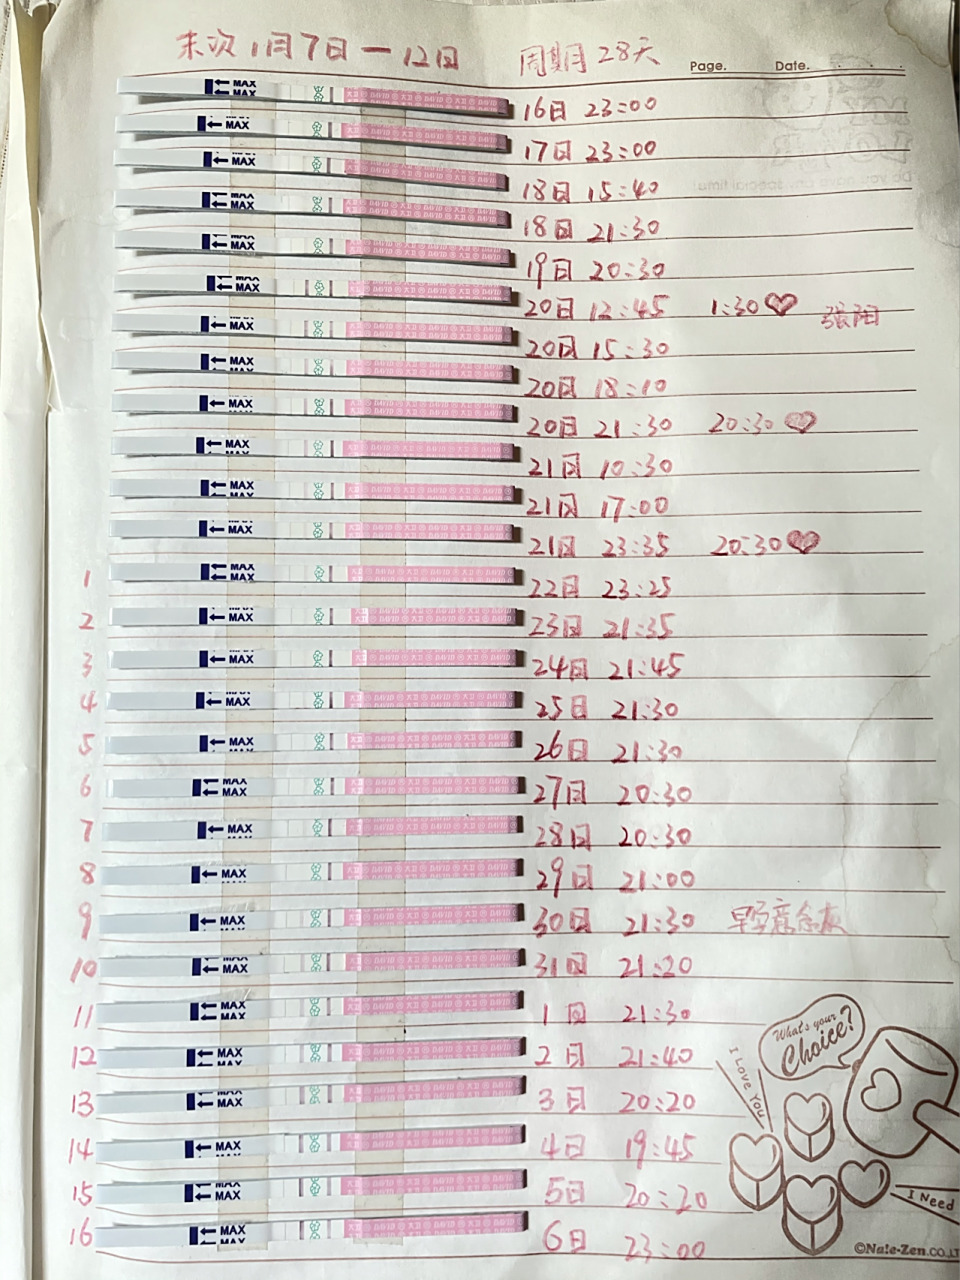 末次1月7日—12日 周期28天
Page. Date.
MAX 16日 23:00
MAX 17日 23:00
MAX 18日 15:40
MAX 18日 21:30
MAX 19日 20:30
MAX 20日 12:45 1:30
MAX 20日 15:30
MAX 20日 18:10
MAX 20日 21:30 20:30
MAX 21日 10:30
MAX 21日 17:00
MAX 21日 23:35 20:30
1 MAX 22日 23:25
2 MAX 23日 21:35
3 MAX 24日 21:45
4 MAX 25日 21:30
5 MAX 26日 21:30
6 MAX 27日 20:30
7 MAX 28日 20:30
8 MAX 29日 21:00
9 MAX 30日 21:30
10 MAX 31日 21:20
11 MAX 1日 21:30
12 MAX 2日 21:40
13 MAX 3日 20:20
14 MAX 4日 19:45
15 MAX 5日 20:20
16 MAX 6日 23:00
What's your
Choice?
I Love You
I Need
©Nale-Zen.CO.,LT